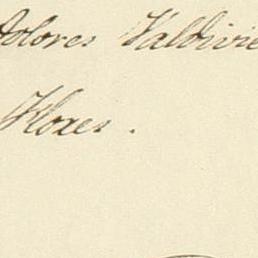 Dolores Valdivie
Flores.